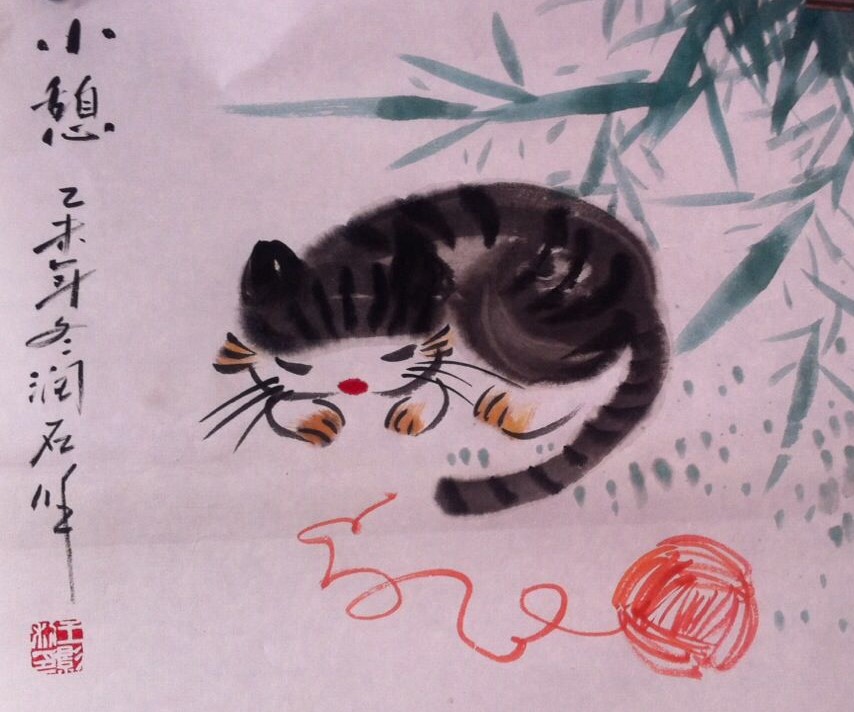 小憩
乙未年冬润石作